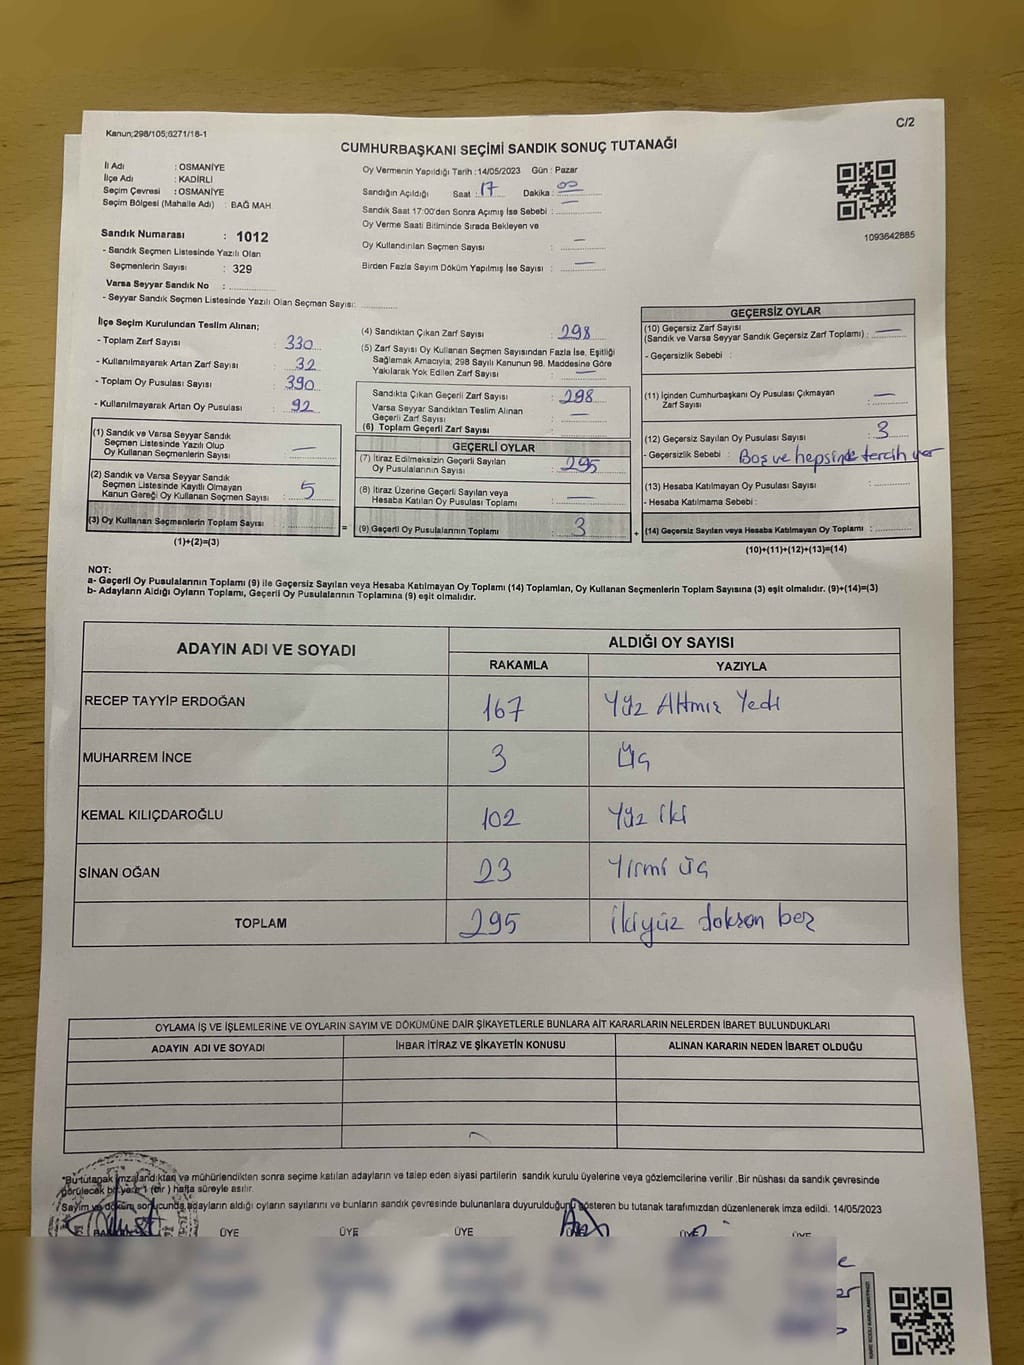 Kanun;298/105;6271/18-1
C/2
CUMHURBAŞKANI SEÇİMİ SANDIK SONUÇ TUTANAĞI
İl Adı : OSMANİYE
İlçe Adı : KADİRLİ
Seçim Çevresi : OSMANİYE
Seçim Bölgesi (Mahalle Adı) : BAĞ MAH.
Sandık Numarası : 1012
- Sandık Seçmen Listesinde Yazılı Olan
Seçmenlerin Sayısı : 329
Varsa Seyyar Sandık No :
- Seyyar Sandık Seçmen Listesinde Yazılı Olan Seçmen Sayısı:
Oy Vermenin Yapıldığı Tarih :14/05/2023 Gün : Pazar
Sandığın Açıldığı Saat : 17 Dakika : 00
Sandık Saat 17:00'den Sonra Açımış İse Sebebi : —
Oy Verme Saati Bitiminde Sırada Bekleyen ve
Oy Kullandırılan Seçmen Sayısı : —
Birden Fazla Sayım Döküm Yapılmış İse Sayısı : —
1093642885
İlçe Seçim Kurulundan Teslim Alınan;
- Toplam Zarf Sayısı : 330
- Kullanılmayarak Artan Zarf Sayısı : 32
- Toplam Oy Pusulası Sayısı : 390
- Kullanılmayarak Artan Oy Pusulası : 92
(1) Sandık ve Varsa Seyyar Sandık
Seçmen Listesinde Yazılı Olup
Oy Kullanan Seçmenlerin Sayısı : —
(2) Sandık ve Varsa Seyyar Sandık
Seçmen Listesinde Kayıtlı Olmayan
Kanun Gereği Oy Kullanan Seçmen Sayısı : 5
(3) Oy Kullanan Seçmenlerin Toplam Sayısı :
(1)+(2)=(3)
=
(4) Sandıktan Çıkan Zarf Sayısı : 298
(5) Zarf Sayısı Oy Kullanan Seçmen Sayısından Fazla İse, Eşitliği
Sağlamak Amacıyla; 298 Sayılı Kanunun 98. Maddesine Göre
Yakılarak Yok Edilen Zarf Sayısı : —
Sandıkta Çıkan Geçerli Zarf Sayısı : 298
Varsa Seyyar Sandıktan Teslim Alınan
Geçerli Zarf Sayısı : —
(6) Toplam Geçerli Zarf Sayısı :
GEÇERLİ OYLAR
(7) İtiraz Edilmeksizin Geçerli Sayılan
Oy Pusulalarının Sayısı : 295
(8) İtiraz Üzerine Geçerli Sayılan veya
Hesaba Katılan Oy Pusulası Toplamı : —
(9) Geçerli Oy Pusulalarının Toplamı : 3
+
GEÇERSİZ OYLAR
(10) Geçersiz Zarf Sayısı
(Sandık ve Varsa Seyyar Sandık Geçersiz Zarf Toplamı) : —
- Geçersizlik Sebebi :
(11) İçinden Cumhurbaşkanı Oy Pusulası Çıkmayan
Zarf Sayısı : —
(12) Geçersiz Sayılan Oy Pusulası Sayısı : 3
- Geçersizlik Sebebi : Boş ve hepsinde tercih var
(13) Hesaba Katılmayan Oy Pusulası Sayısı :
- Hesaba Katılmama Sebebi :
(14) Geçersiz Sayılan veya Hesaba Katılmayan Oy Toplamı :
(10)+(11)+(12)+(13)=(14)
NOT:
a- Geçerli Oy Pusulalarının Toplamı (9) ile Geçersiz Sayılan veya Hesaba Katılmayan Oy Toplamı (14) Toplamları, Oy Kullanan Seçmenlerin Toplam Sayısına (3) eşit olmalıdır. (9)+(14)=(3)
b- Adayların Aldığı Oyların Toplamı, Geçerli Oy Pusulalarının Toplamına (9) eşit olmalıdır.
ADAYIN ADI VE SOYADI ALDIĞI OY SAYISI
RAKAMLA YAZIYLA
RECEP TAYYİP ERDOĞAN 167 Yüz Altmış Yedi
MUHARREM İNCE 3 Üç
KEMAL KILIÇDAROĞLU 102 Yüz iki
SİNAN OĞAN 23 Yirmi üç
TOPLAM 295 İkiyüz doksan beş
OYLAMA İŞ VE İŞLEMLERİNE VE OYLARIN SAYIM VE DÖKÜMÜNE DAİR ŞİKAYETLERLE BUNLARA AİT KARARLARIN NELERDEN İBARET BULUNDUKLARI
ADAYIN ADI VE SOYADI İHBAR İTİRAZ VE ŞİKAYETİN KONUSU ALINAN KARARIN NEDEN İBARET OLDUĞU
*Bu tutanak imzalandıktan ve mühürlendikten sonra seçime katılan adayların ve talep eden siyasi partilerin sandık kurulu üyelerine veya gözlemcilerine verilir .Bir nüshası da sandık çevresinde
görülecek bir yere 1 (bir ) hafta süreyle asılır.
Sayım ve döküm sonucunda adayların aldığı oyların sayılarını ve bunların sandık çevresinde bulunanlara duyurulduğunu gösteren bu tutanak tarafımızdan düzenlenerek imza edildi. 14/05/2023
ÜYE ÜYE ÜYE ÜYE ÜYE ÜYE